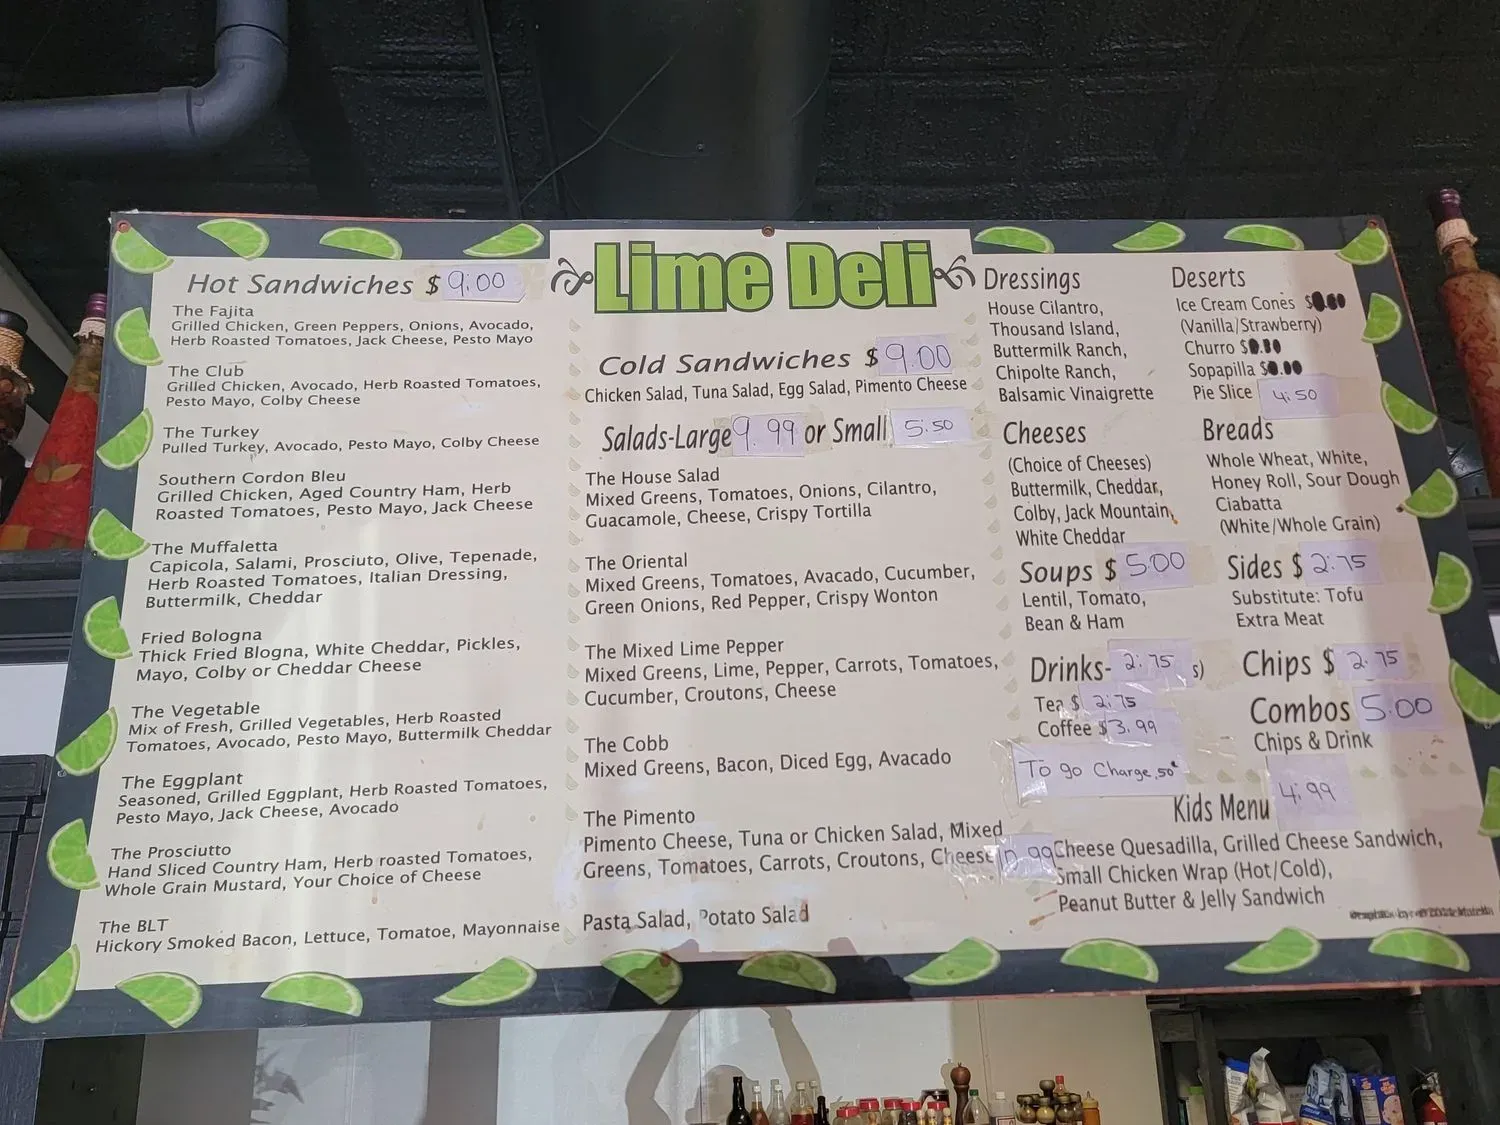 Lime Deli
Hot Sandwiches $ 9:00
The Fajita
Grilled Chicken, Green Peppers, Onions, Avocado,
Herb Roasted Tomatoes, Jack Cheese, Pesto Mayo
The Club
Grilled Chicken, Avocado, Herb Roasted Tomatoes,
Pesto Mayo, Colby Cheese
The Turkey
Pulled Turkey, Avocado, Pesto Mayo, Colby Cheese
Southern Cordon Bleu
Grilled Chicken, Aged Country Ham, Herb
Roasted Tomatoes, Pesto Mayo, Jack Cheese
The Muffaletta
Capicola, Salami, Prosciuto, Olive, Tepenade,
Herb Roasted Tomatoes, Italian Dressing,
Buttermilk, Cheddar
Fried Bologna
Thick Fried Blogna, White Cheddar, Pickles,
Mayo, Colby or Cheddar Cheese
The Vegetable
Mix of Fresh, Grilled Vegetables, Herb Roasted
Tomatoes, Avocado, Pesto Mayo, Buttermilk Cheddar
The Eggplant
Seasoned, Grilled Eggplant, Herb Roasted Tomatoes,
Pesto Mayo, Jack Cheese, Avocado
The Prosciutto
Hand Sliced Country Ham, Herb roasted Tomatoes,
Whole Grain Mustard, Your Choice of Cheese
The BLT
Hickory Smoked Bacon, Lettuce, Tomatoe, Mayonnaise
Cold Sandwiches $ 9.00
Chicken Salad, Tuna Salad, Egg Salad, Pimento Cheese
Salads-Large 9.99 or Small 5:50
The House Salad
Mixed Greens, Tomatoes, Onions, Cilantro,
Guacamole, Cheese, Crispy Tortilla
The Oriental
Mixed Greens, Tomatoes, Avacado, Cucumber,
Green Onions, Red Pepper, Crispy Wonton
The Mixed Lime Pepper
Mixed Greens, Lime, Pepper, Carrots, Tomatoes,
Cucumber, Croutons, Cheese
The Cobb
Mixed Greens, Bacon, Diced Egg, Avacado
The Pimento
Pimento Cheese, Tuna or Chicken Salad, Mixed
Greens, Tomatoes, Carrots, Croutons, Cheese
Pasta Salad, Potato Salad
Dressings
House Cilantro,
Thousand Island,
Buttermilk Ranch,
Chipolte Ranch,
Balsamic Vinaigrette
Cheeses
(Choice of Cheeses)
Buttermilk, Cheddar,
Colby, Jack Mountain,
White Cheddar
Soups $ 5:00
Lentil, Tomato,
Bean & Ham
Drinks- 2:75 s)
Tea $ 2:75
Coffee $ 3.99
To go Charge .50¢
Deserts
Ice Cream Cones $
(Vanilla/Strawberry)
Churro $
Sopapilla $
Pie Slice 4:50
Breads
Whole Wheat, White,
Honey Roll, Sour Dough
Ciabatta
(White/Whole Grain)
Sides $ 2:75
Substitute: Tofu
Extra Meat
Chips $ 2.75
Combos 5.00
Chips & Drink
Kids Menu 4:99
Cheese Quesadilla, Grilled Cheese Sandwich,
Small Chicken Wrap (Hot/Cold),
Peanut Butter & Jelly Sandwich